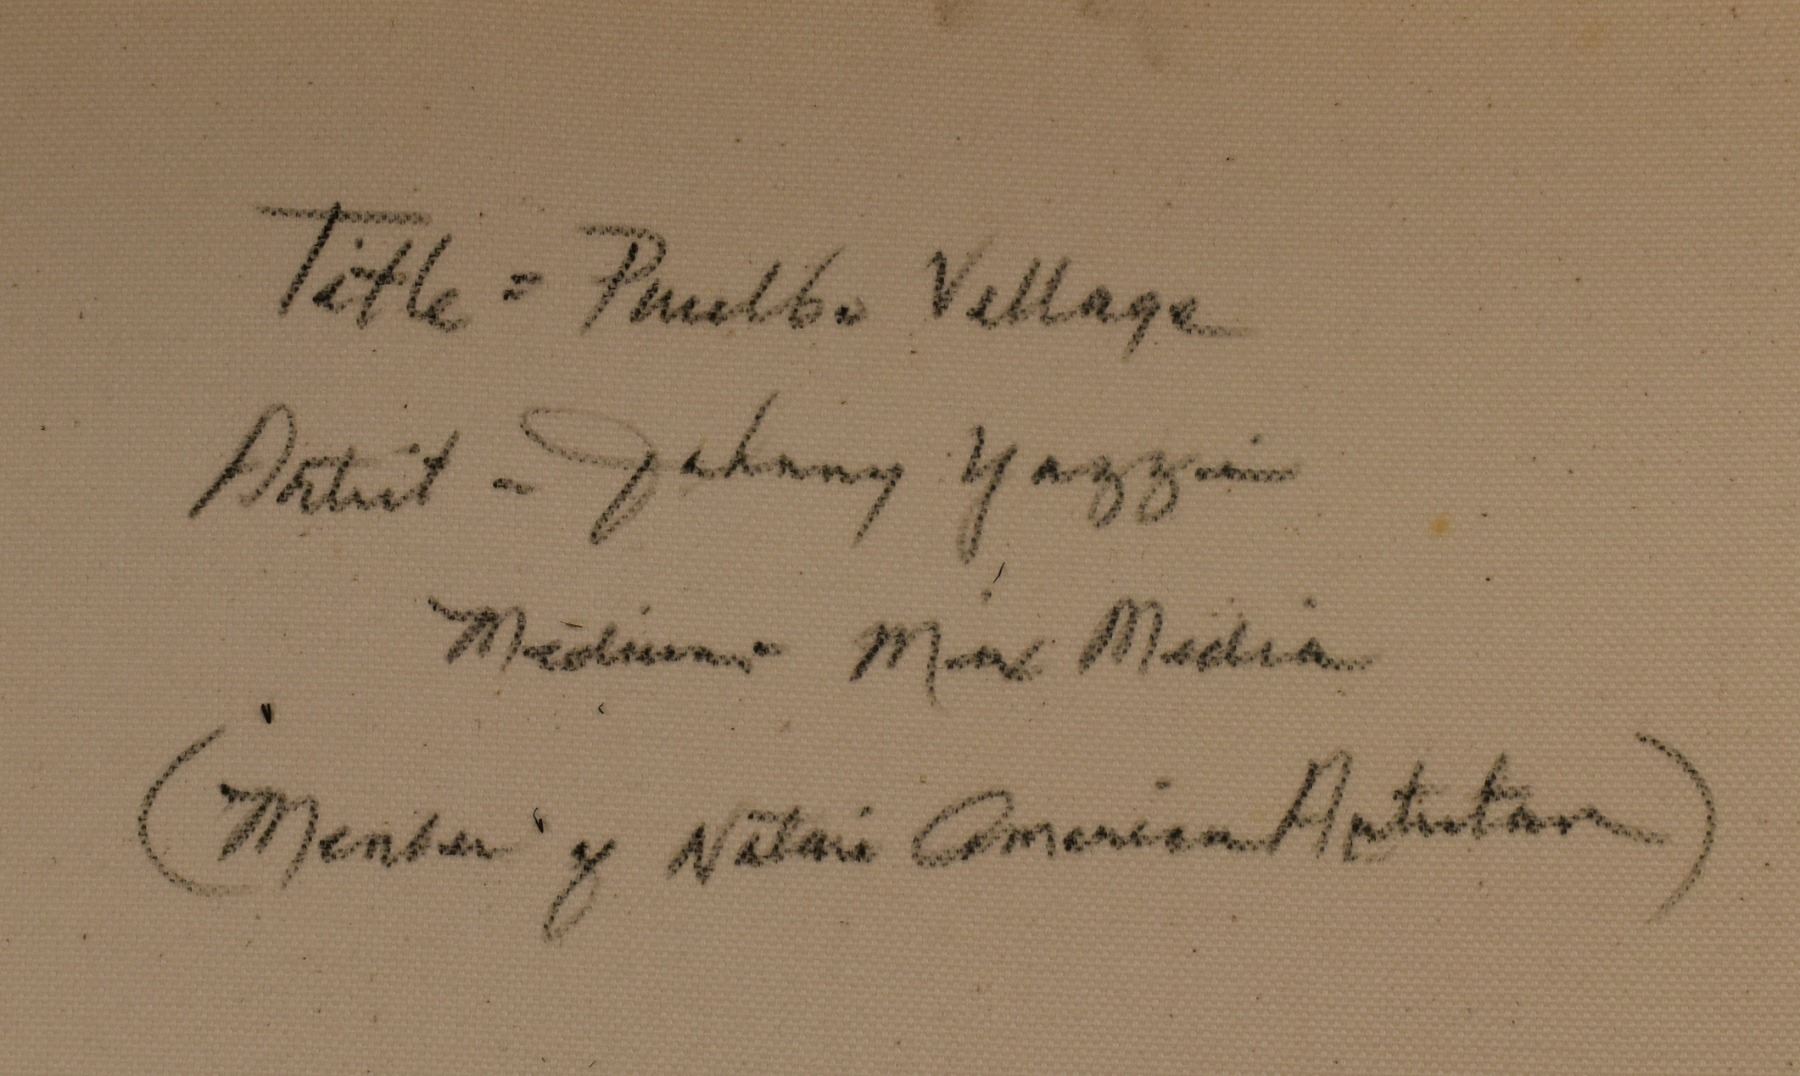 Title = Pueblo Village
Artist - Johnny Yazzie
Medium - Mix Media
(Member of Native American